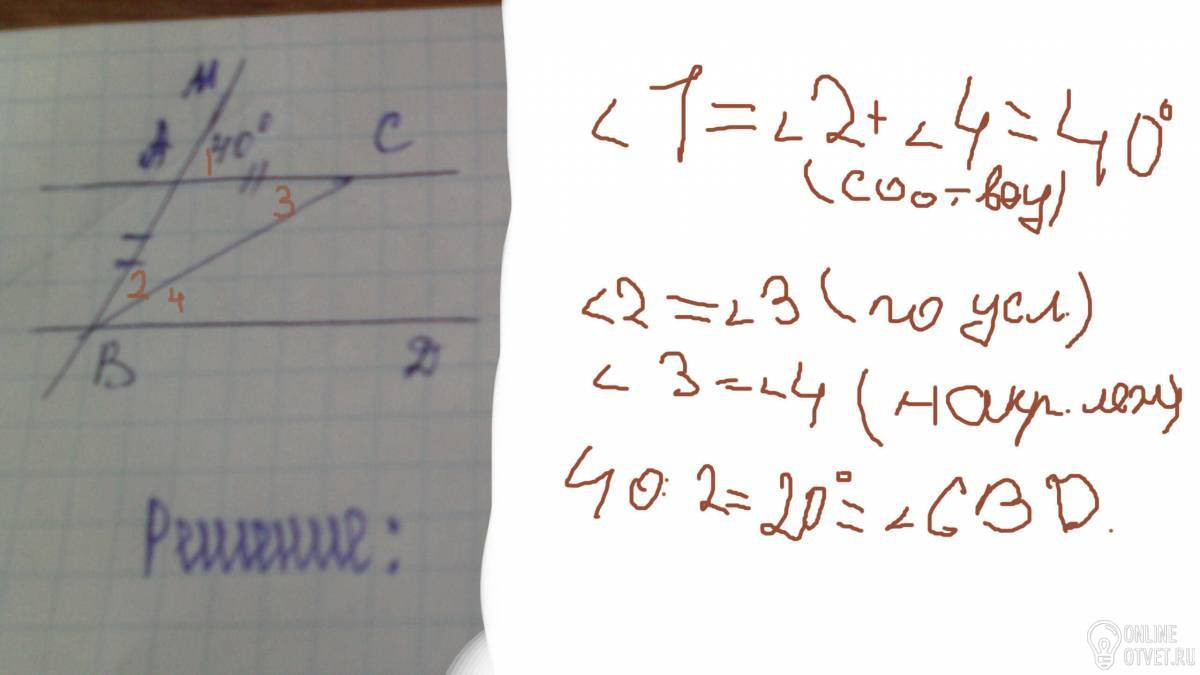 M
A
1 40°
C
3
2
4
B
D
Решение:
∠1=∠2+∠4=40°
(соо-веу)
∠2=∠3 (по усл.)
∠3=∠4 (накр. леж)
40:2=20°=∠CBD.
ONLINE
OTVET.RU